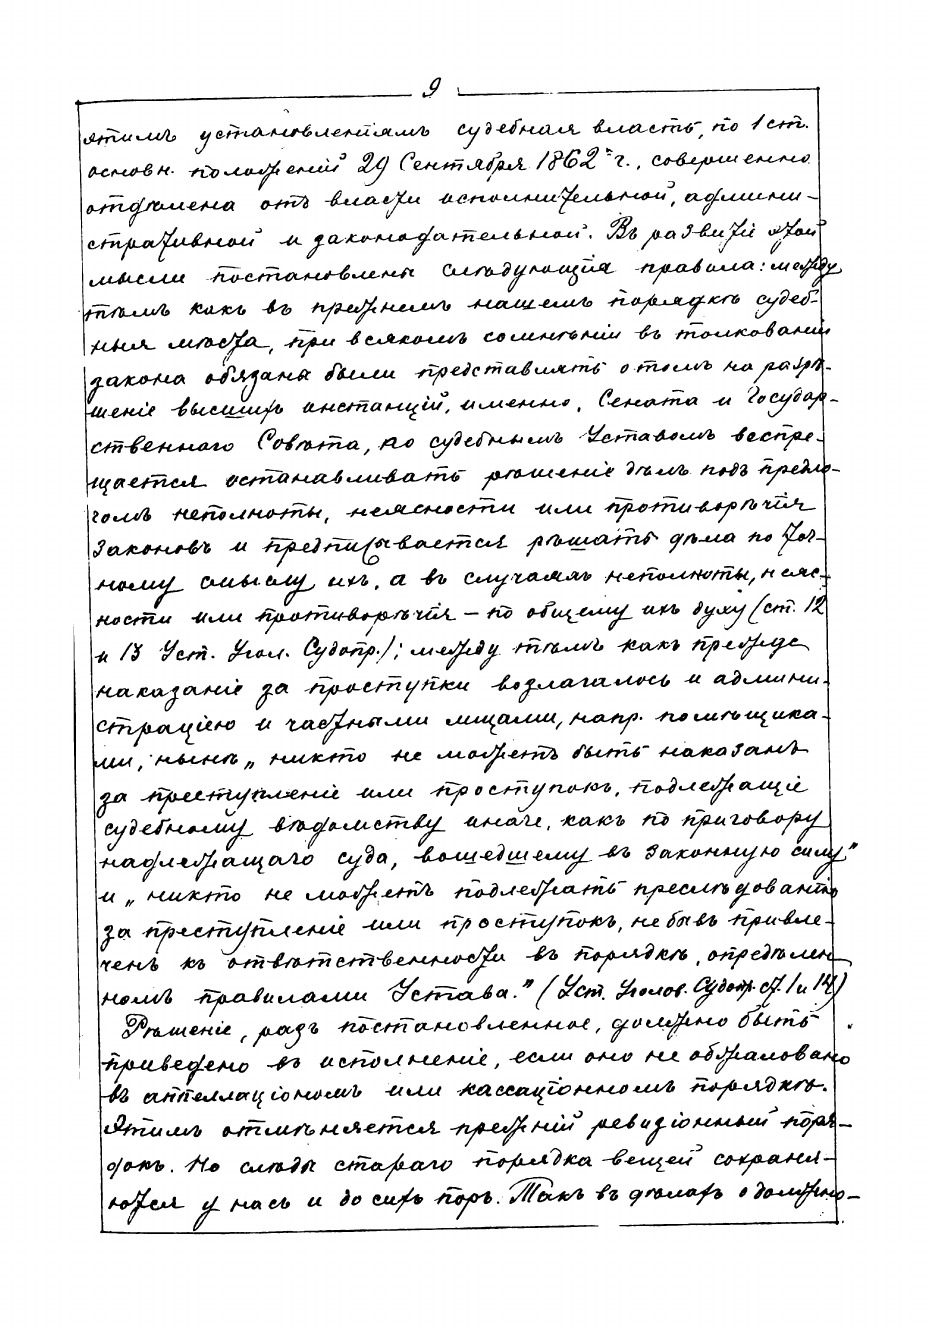 9
этимъ установленіямъ судебная власть, по 1 ст.
основн. положеній 29 Сентября 1862 г., совершенно
отдѣлена отъ власти исполнительной, админи-
стративной и законодательной. Въ развитіе этой
мысли постановлены слѣдующія правила: между
тѣмъ какъ въ прежнемъ нашемъ порядкѣ судеб-
ныя мѣста, при всякомъ сомнѣніи въ толкованіи
закона обязаны были представлять о томъ на разрѣ-
шеніе высшихъ инстанцій, именно, Сената и Государ-
ственнаго Совѣта, по судебнымъ Уставомъ воспре-
щается останавливать рѣшеніе дѣлъ подъ предло-
гомъ неполноты, неясности или противорѣчія
законовъ и предписывается рѣшать дѣла по точ-
ному смыслу ихъ, а въ случаяхъ неполноты, неяс-
ности или противорѣчія – по общему ихъ духу (ст. 12
и 13 Уст. Угол. Судопр.); между тѣмъ какъ прежде
наказаніе за проступки возлагалось и админи-
страціею и частными лицами, напр. помѣщика-
ми, нынѣ „ никто не можетъ быть наказанъ
за преступленіе или проступокъ, подлежащіе
судебному вѣдомству иначе, какъ по приговору
надлежащаго суда, вошедшему въ законную силу"
и „ никто не можетъ подлежать преслѣдованію
за преступленіе или проступокъ, не бывъ привле-
ченъ къ отвѣтственности въ порядкѣ, опредѣлен
номъ правилами Устава." (Уст. Уголов. Судопр. ст. 1 и 14)
Рѣшеніе, разъ постановленное, должно быть
приведено въ исполненіе, если оно не обжаловано
въ аппелляціономъ или кассаціонномъ порядкѣ.
Этимъ отмѣняется прежній ревизіонный поря-
докъ. Но слѣды стараго порядка вещей сохраня-
ются у насъ и до сихъ поръ. Такъ въ дѣлахъ о должно-